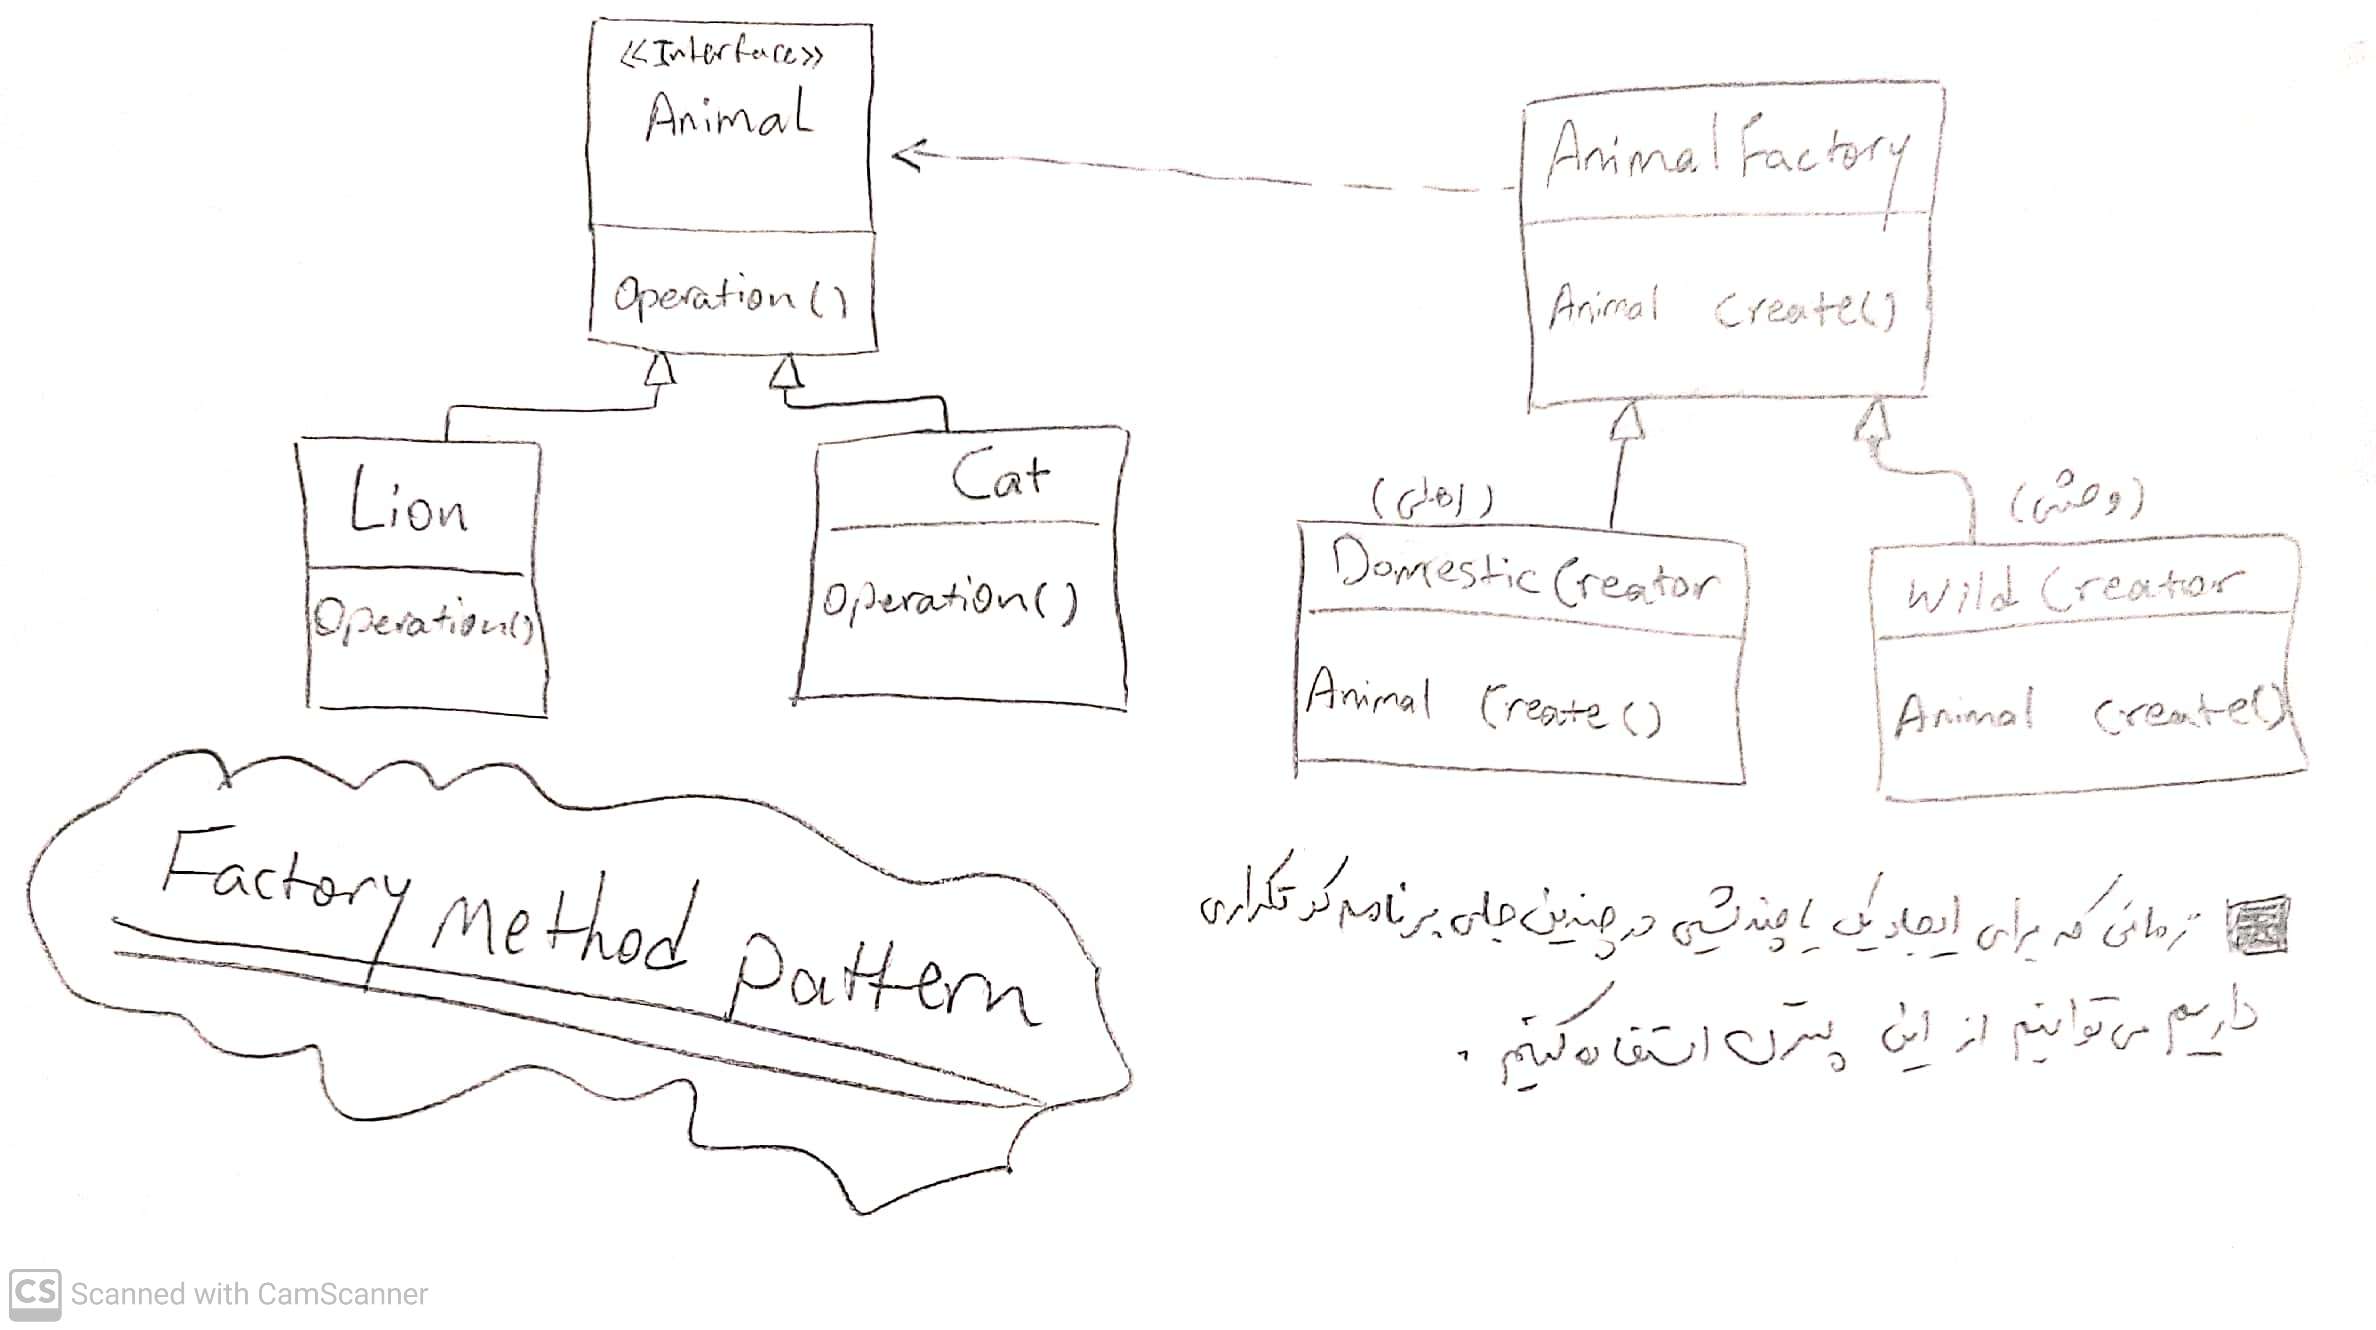 <<Interface>>
Animal
Operation()
Lion
Operation()
Cat
Operation()
AnimalFactory
Animal Create()
(اهلی)
Domestic Creator
Animal Create()
(وحشی)
Wild Creator
Animal Create()
Factory Method Pattern
زمانی که برای ایجاد یک یا چند شیی در چندین جای برنامه کد تکراری
داریم می توانیم از این پترن استفاده کنیم.
CS Scanned with CamScanner